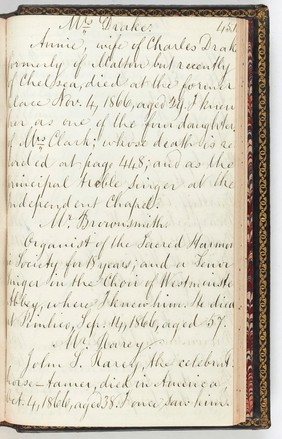 Mrs Drake. 451
Annie, wife of Charles Drake
formerly of but recently
of Chelsea, died at the former
place Nov. 4, 1866, aged I knew
er as one of the five daughters
of Mrs Clark; whose death is re
corded at page 448; and as the
principal treble singer at the
ndependent Chapel.
Mr. Brownsmith.
Organist of the Sacred Harmon
c Society for 18 years; and a Tenor
inger in the Choir of Westminste
bbey, where I knew him. He died
t Pimlico, Sep. 14, 1866, aged 57.
Mr. Rarey.
John S. Rarey, the celebrat
horse-tamer, died in America,
Oct. 4, 1866, aged 38. I once saw him.